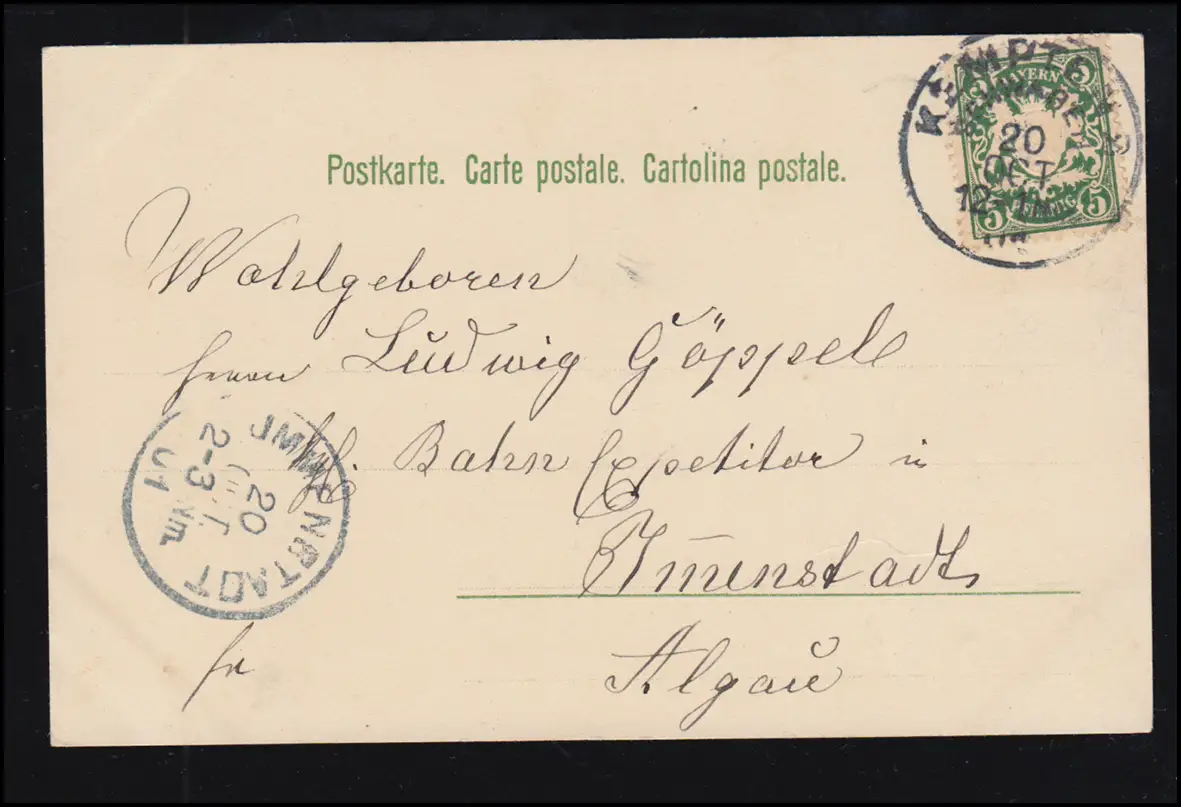 Postkarte. Carte postale. Cartolina postale.
KEMPTEN 2
SCHWABEN
20
OCT
12-1
5
BAYERN
5
5
PFENNIG
5
Wohlgeboren
Herrn Ludwig Göppel
Bahn Expetitor in
Immenstadt
Algäu
fr
IMMENSTADT
20
OCT.
2-3 Nm.
01